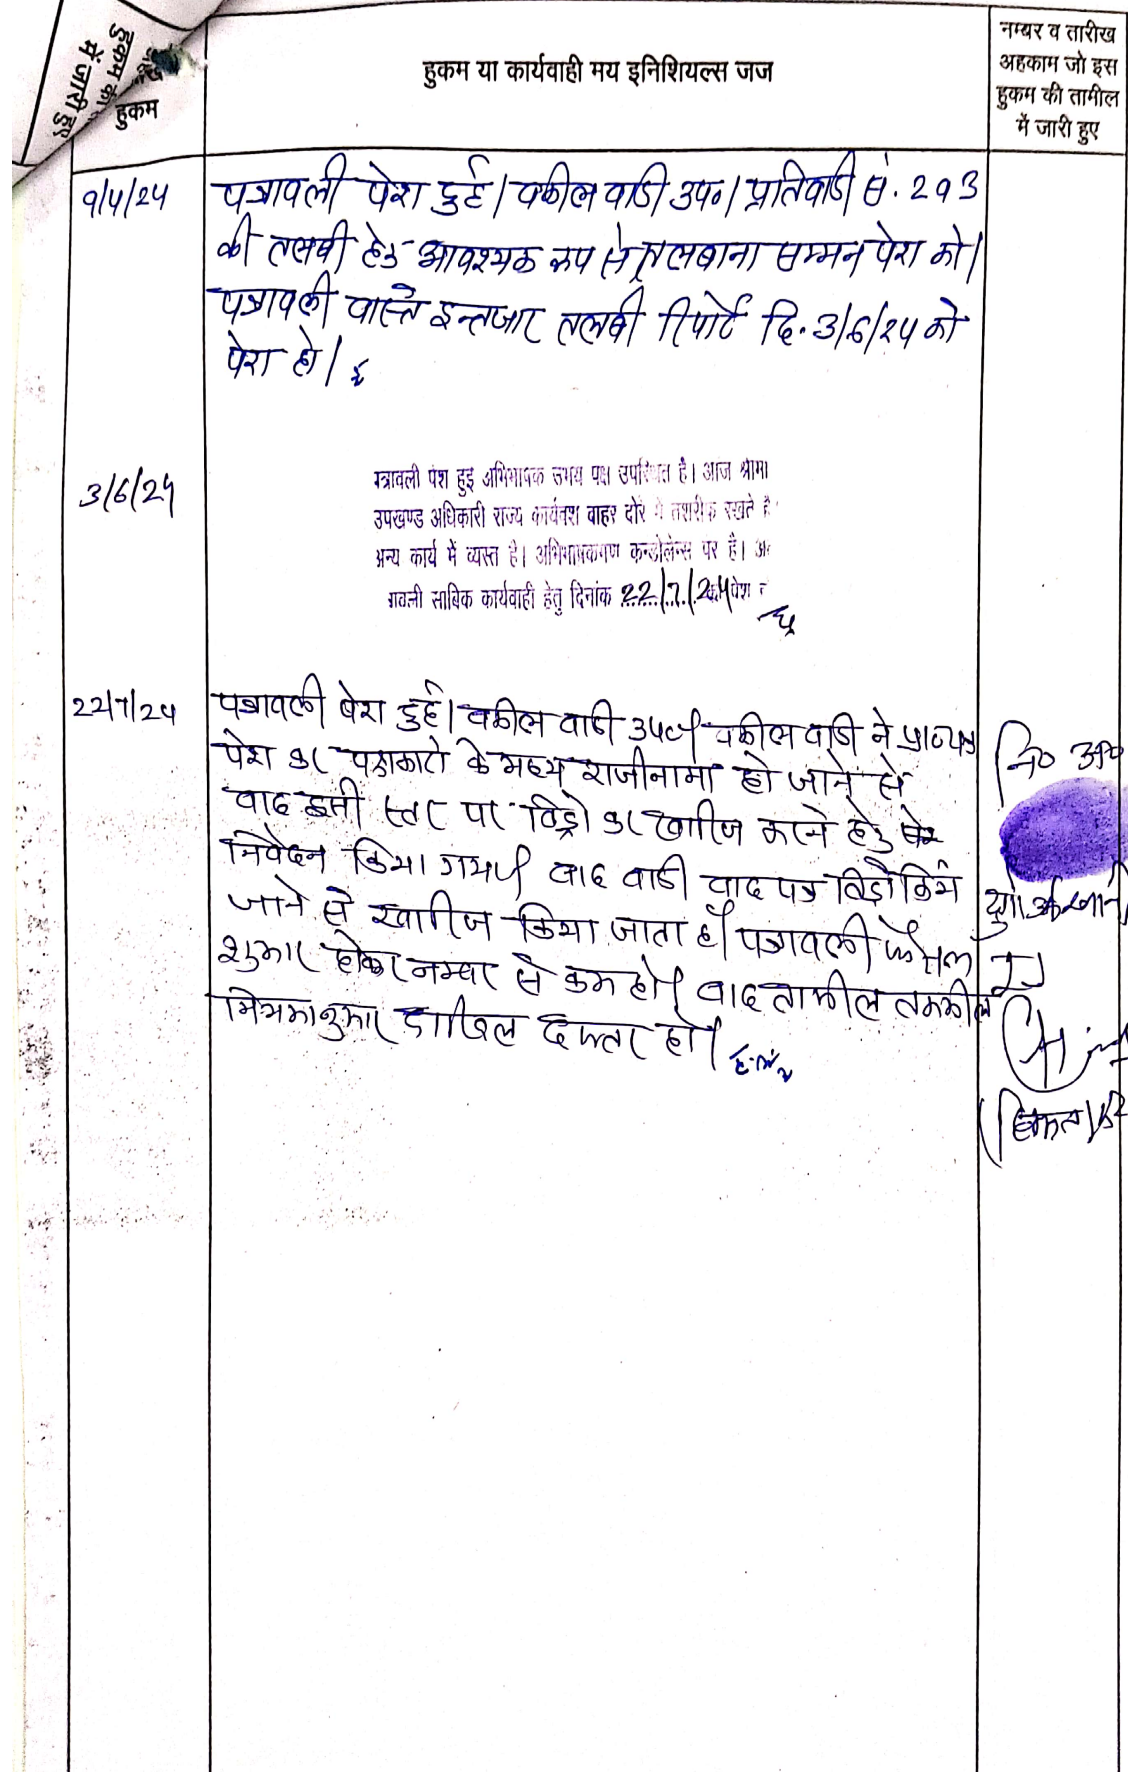 हुकम की
में जारी हुए
हुकम
हुकम या कार्यवाही मय इनिशियल्स जज
नम्बर व तारीख
अहकाम जो इस
हुकम की तामील
में जारी हुए
9/4/24
पत्रावली पेश हुई। वकील वादी उप०। प्रतिवादी सं. 2 व 3
की तलबी हेतु आवश्यक रूप से तलबाना सम्मन पेश करे।
पत्रावली वास्ते इन्तजार तलबी रिपोर्ट दि. 3/6/24 को
पेश हो।
3/6/24
पत्रावली पेश हुई अभिभाषक उभय पक्ष उपस्थित है। आज श्रीमा
उपखण्ड अधिकारी राज्य कार्यवश बाहर दौरे में तशरीफ रखते है
अन्य कार्य में व्यस्त है। अभिभाषकगण कन्डोलेन्स पर है। अ
त्रावली साबिक कार्यवाही हेतु दिनांक 22/7/24 पेश
22/7/24
पत्रावली पेश हुई। वकील वादी उप०। वकील वादी ने प्रा०पत्र
पेश कर पक्षकारो के मध्य राजीनामा हो जाने से
वाद इसी स्तर पर विड्रो कर खारीज करने हेतु
निवेदन किया गया। वाद वादी वाद पत्र विड्रो किये
जाने से खारीज किया जाता है। पत्रावली फैसल
शुमार होकर नम्बर से कम हो। बाद तामील तकमील
नियमानुसार दाखिल दफ्तर हो।
नि० अंगु